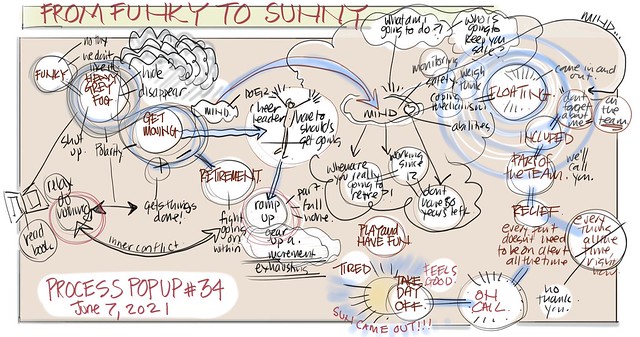 FROM FUNKY TO SUNNY
FUNKY
no they
we don't
like it
HEAVY
GREY
FOG
hide
disappear
shut
up.
Polarity
GET
MOVING
MIND
gets things
done!
relax
do
nothing
read
book
inner conflict
RETIREMENT
fight
going
on
within
cheer
leader
have to
shoulds
get going
romp
up
part
fall
home.
gear
up a
movement
exhausting
what am i
going to do?
who is
going to
keep you
safe?
MIND...
MIND
monitoring
safety
weigh
funk
coping
mechanisms
abilities
when are
you really
going to
retire?!
working
since
12
don't
have 50
years left
PLAY AND
HAVE FUN.
FLOATING
came in and
out.
don't
forget
about
me
on
the
team
INCLUDED
PART OF
THE TEAM.
we'll
call
you.
RELIEF
every part
doesn't need
to be on alert
all the time
every
thing
all the
time
right
now
no
thank
you.
ON
CALL.
FEELS
GOOD.
TIRED
TAKE
DAY
OFF.
SUN CAME OUT!!!
PROCESS POPUP #34
June 7, 2021